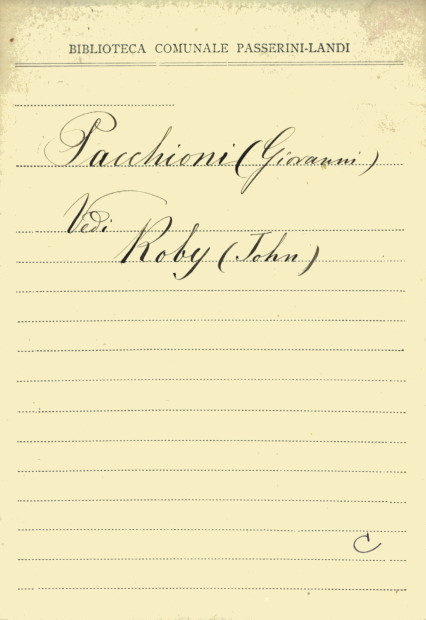 BIBLIOTECA COMUNALE PASSERINI-LANDI
Pacchioni (Giovanni)
Vedi
Roby (John)
C